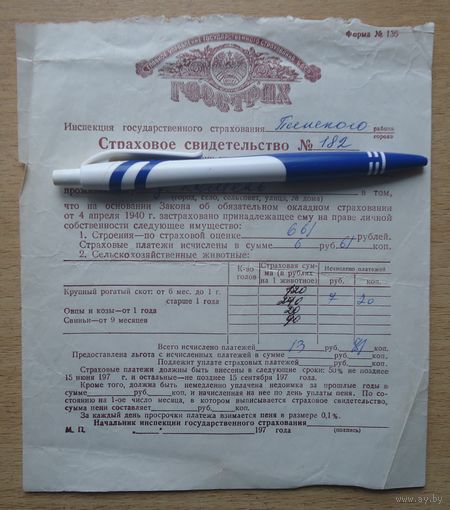 Форма № 136
ГОССТРАХ
Инспекция государственного страхования Пинского района
города
Страховое свидетельство № 182
в том,
(город, село, сельсовет, улица, № дома)
что на основании Закона об обязательном окладном страховании
от 4 апреля 1940 г. застраховано принадлежащее ему на праве личной
собственности следующее имущество:
1. Строения—по страховой оценке 661 рублей.
Страховые платежи исчислены в сумме 6 руб. 61 коп.
2. Сельскохозяйственные животные:
К-во голов
Страховая сумма (в рублях на 1 животное)
Исчислено платежей
руб. коп.
Крупный рогатый скот: от 6 мес. до 1 г. 120
старше 1 года 240 7 20
Овцы и козы—от 1 года 20
Свиньи—от 9 месяцев 90
Всего исчислено платежей 13 руб. 81 коп.
Предоставлена льгота с исчисленных платежей в сумме руб. коп.
Подлежит уплате страховых платежей руб. коп.
Страховые платежи должны быть внесены в следующие сроки: 50% не позднее
15 июня 197 г. и остальные—не позднее 15 сентября 197 года.
Кроме того, должна быть немедленно уплачена недоимка за прошлые годы в
сумме руб. коп. и начисленная на нее по день уплаты пеня. По со-
стоянию на 1-ое число месяца, в котором выписывается страховое свидетельство,
сумма пени составляет руб. коп.
За каждый день просрочки платежа взимается пеня в размере 0,1%.
Начальник инспекции государственного страхования
М. П. „ “ 197 года (подпись)
www.ay.by